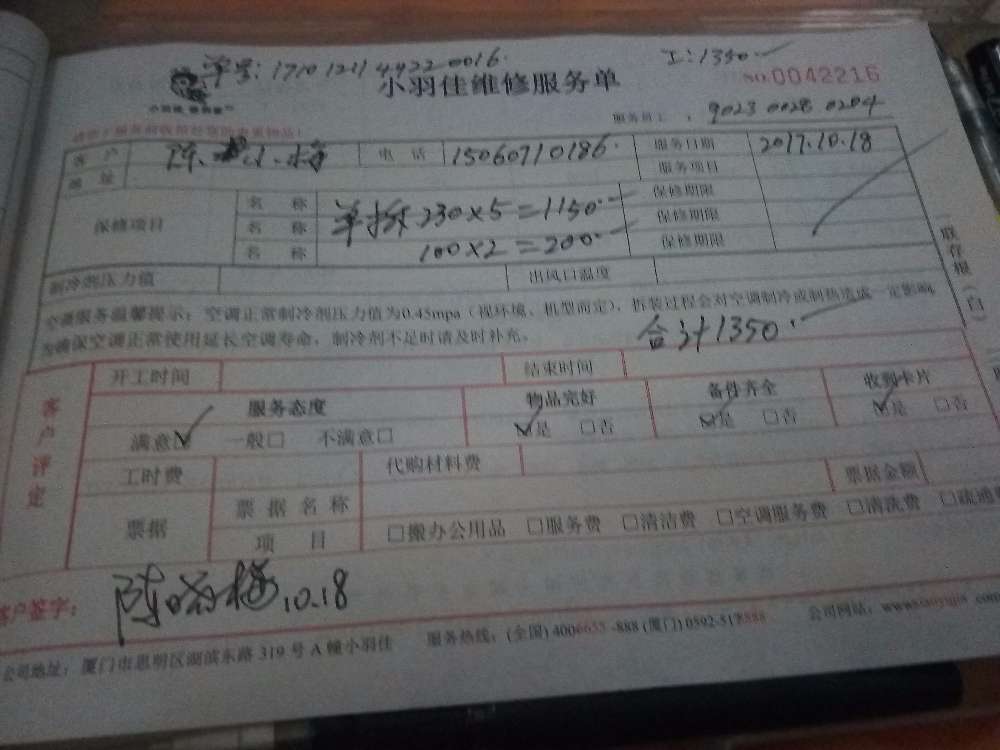 单号:17101211449220016. 工:1350
小羽佳维修服务单 NO.0042216
服务员工: 9023 0028 0204
客户 陈小梅 电话 15060710186. 服务日期 2017.10.18
地址 服务项目
保修项目 名称 单拆 230×5=1150 保修期限
名称 保修期限
名称 100×2=200 保修期限
制冷剂压力值 出风口温度
空调服务温馨提示:空调正常制冷剂压力值为0.45mpa(视环境、机型而定),拆装过程会对空调制冷或制热造成一定影响
为确保空调正常使用延长空调寿命,制冷剂不足时请及时补充。
合计1350.
客户评定
开工时间 结束时间
服务态度 物品完好 备件齐全 收到卡片
满意☑ 一般□ 不满意□ ☑是 □否 ☑是 □否 ☑是 □否
工时费 代购材料费
票据 票据名称 票据金额
项目 □搬办公用品 □服务费 □清洁费 □空调服务费 □清洗费 □疏通
客户签字: 10.18
公司地址:厦门市思明区湖滨东路319号A幢小羽佳 服务热线:(全国)4006655-888 (厦门)0592-5178888 公司网站:www.xiaoyujia.com
联存根(白)